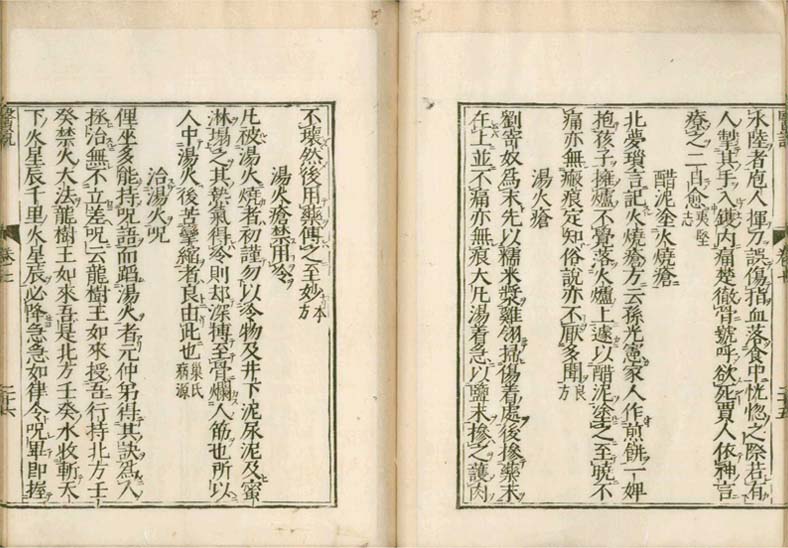 水陸者庖人揮刀誤傷指血落食中恍惚之際若有
人掣其手入鑊内痛楚徹骨號呼欲死賈人依神言
療之二日愈夷堅志
醋泥塗火燒瘡
北夢瑣言記火燒瘡方云孫光憲家人作煎餅一婢
抱孩子擁爐不覺落火爐上遽以醋泥塗之至曉不
痛亦無瘢痕定知俗說亦不厭多聞良方
湯火瘡
劉寄奴爲末先以糯米漿雞翎掃傷着處後摻藥末
在上並不痛亦無痕大凡湯着急以鹽末摻之護肉
不壞然後用藥傅之至妙本方
湯火瘡禁用冷
凡被湯火燒者初謹勿以冷物及井下泥尿泥及蜜
淋塌之其熱氣得冷則却深搏至骨爛人筋也所以
人中湯火後苦攣縮者良由此也巢氏病源
治湯火呪
俚巫多能持呪語而蹈湯火者元仲弟得其訣爲人
拯治無不立差呪云龍樹王如來授吾行持北方壬
癸禁火大法龍樹王如來吾是北方壬癸水收斬天
下火星辰千里火星辰必降急急如律令呪畢即握
醫説
卷七
二十五
醫説
卷七
二十六